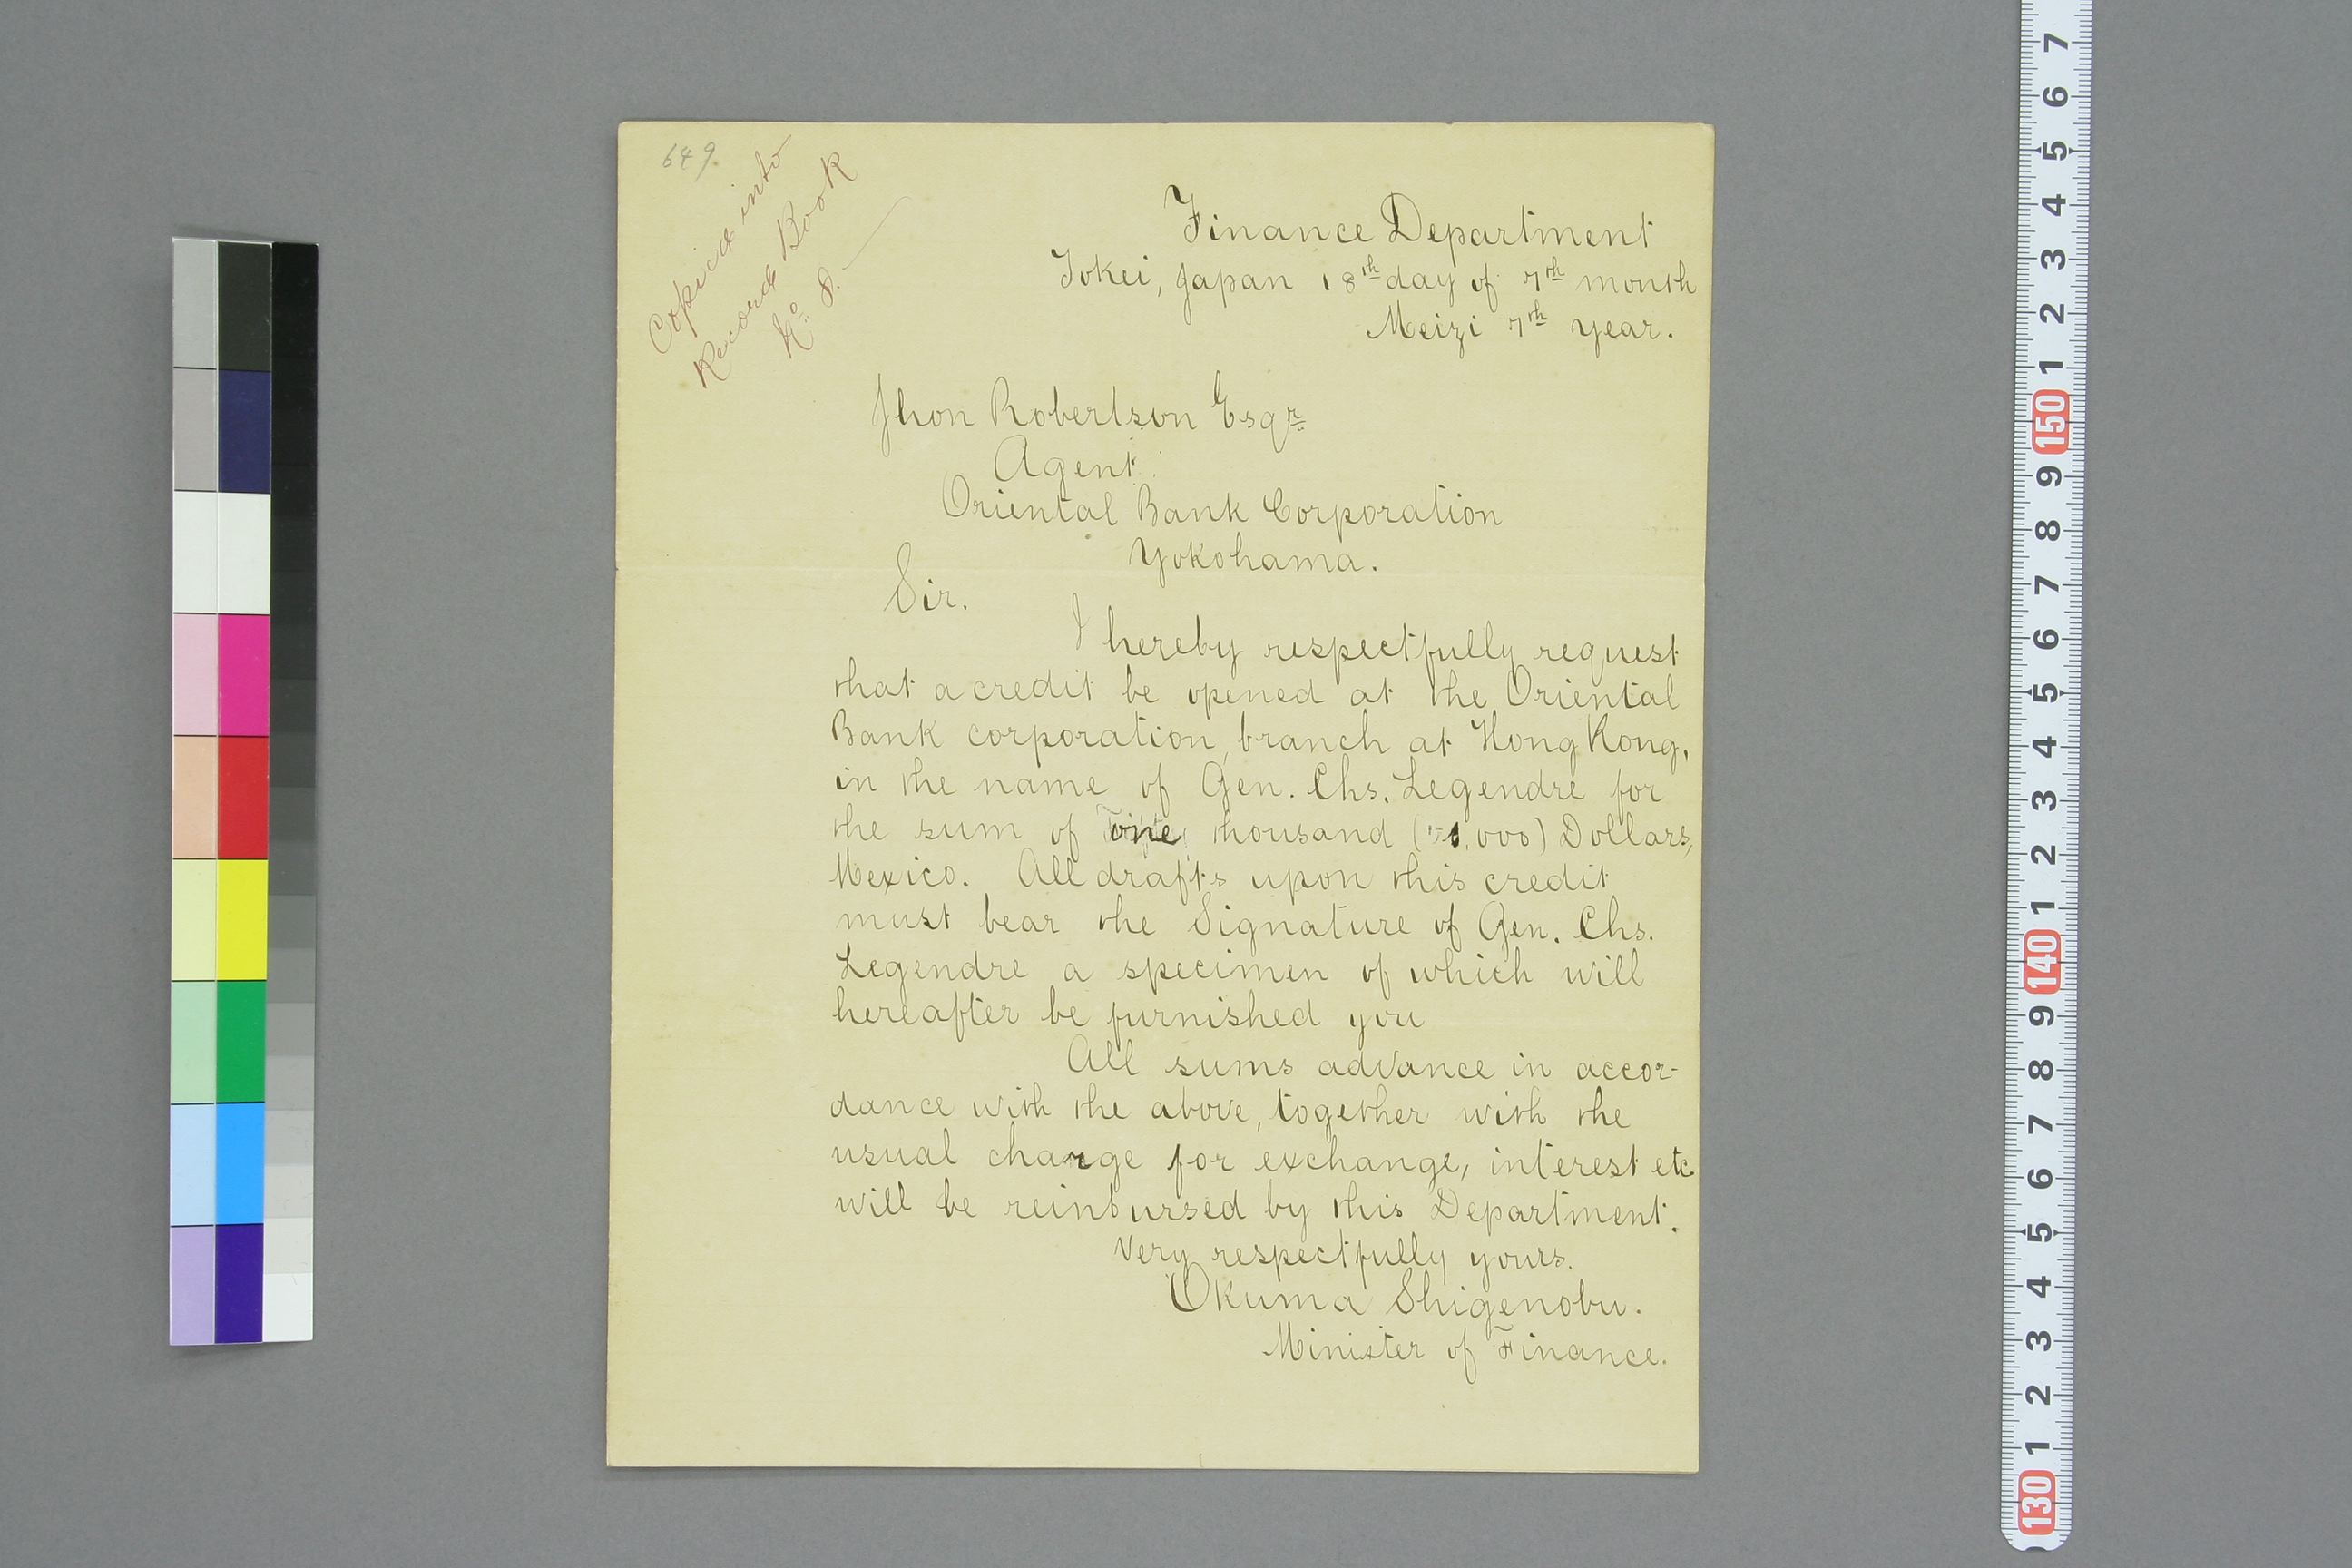 649.
Copied into
Record Book
No. 8.
Finance Department
Tokei, Japan 18th day of 7th month
Meizi 7th year.
Jhon Robertson Esqr
Agent
Oriental Bank Corporation
Yokohama.
Sir.
I hereby respectfully request
that a credit be opened at the Oriental
Bank corporation, branch at Hong Kong,
in the name of Gen. Chs. Legendre for
the sum of one thousand (1,000) Dollars,
Mexico. All drafts upon this credit
must bear the Signature of Gen. Chs.
Legendre a specimen of which will
hereafter be furnished you
All sums advance in accor-
dance with the above, together with the
usual charge for exchange, interest etc
will be reinbursed by this Department.
Very respectfully yours.
Okuma Shigenobu.
Minister of Finance.
7
6
5
4
3
2
1
150
9
8
7
6
5
4
3
2
1
140
9
8
7
6
5
4
3
2
1
130